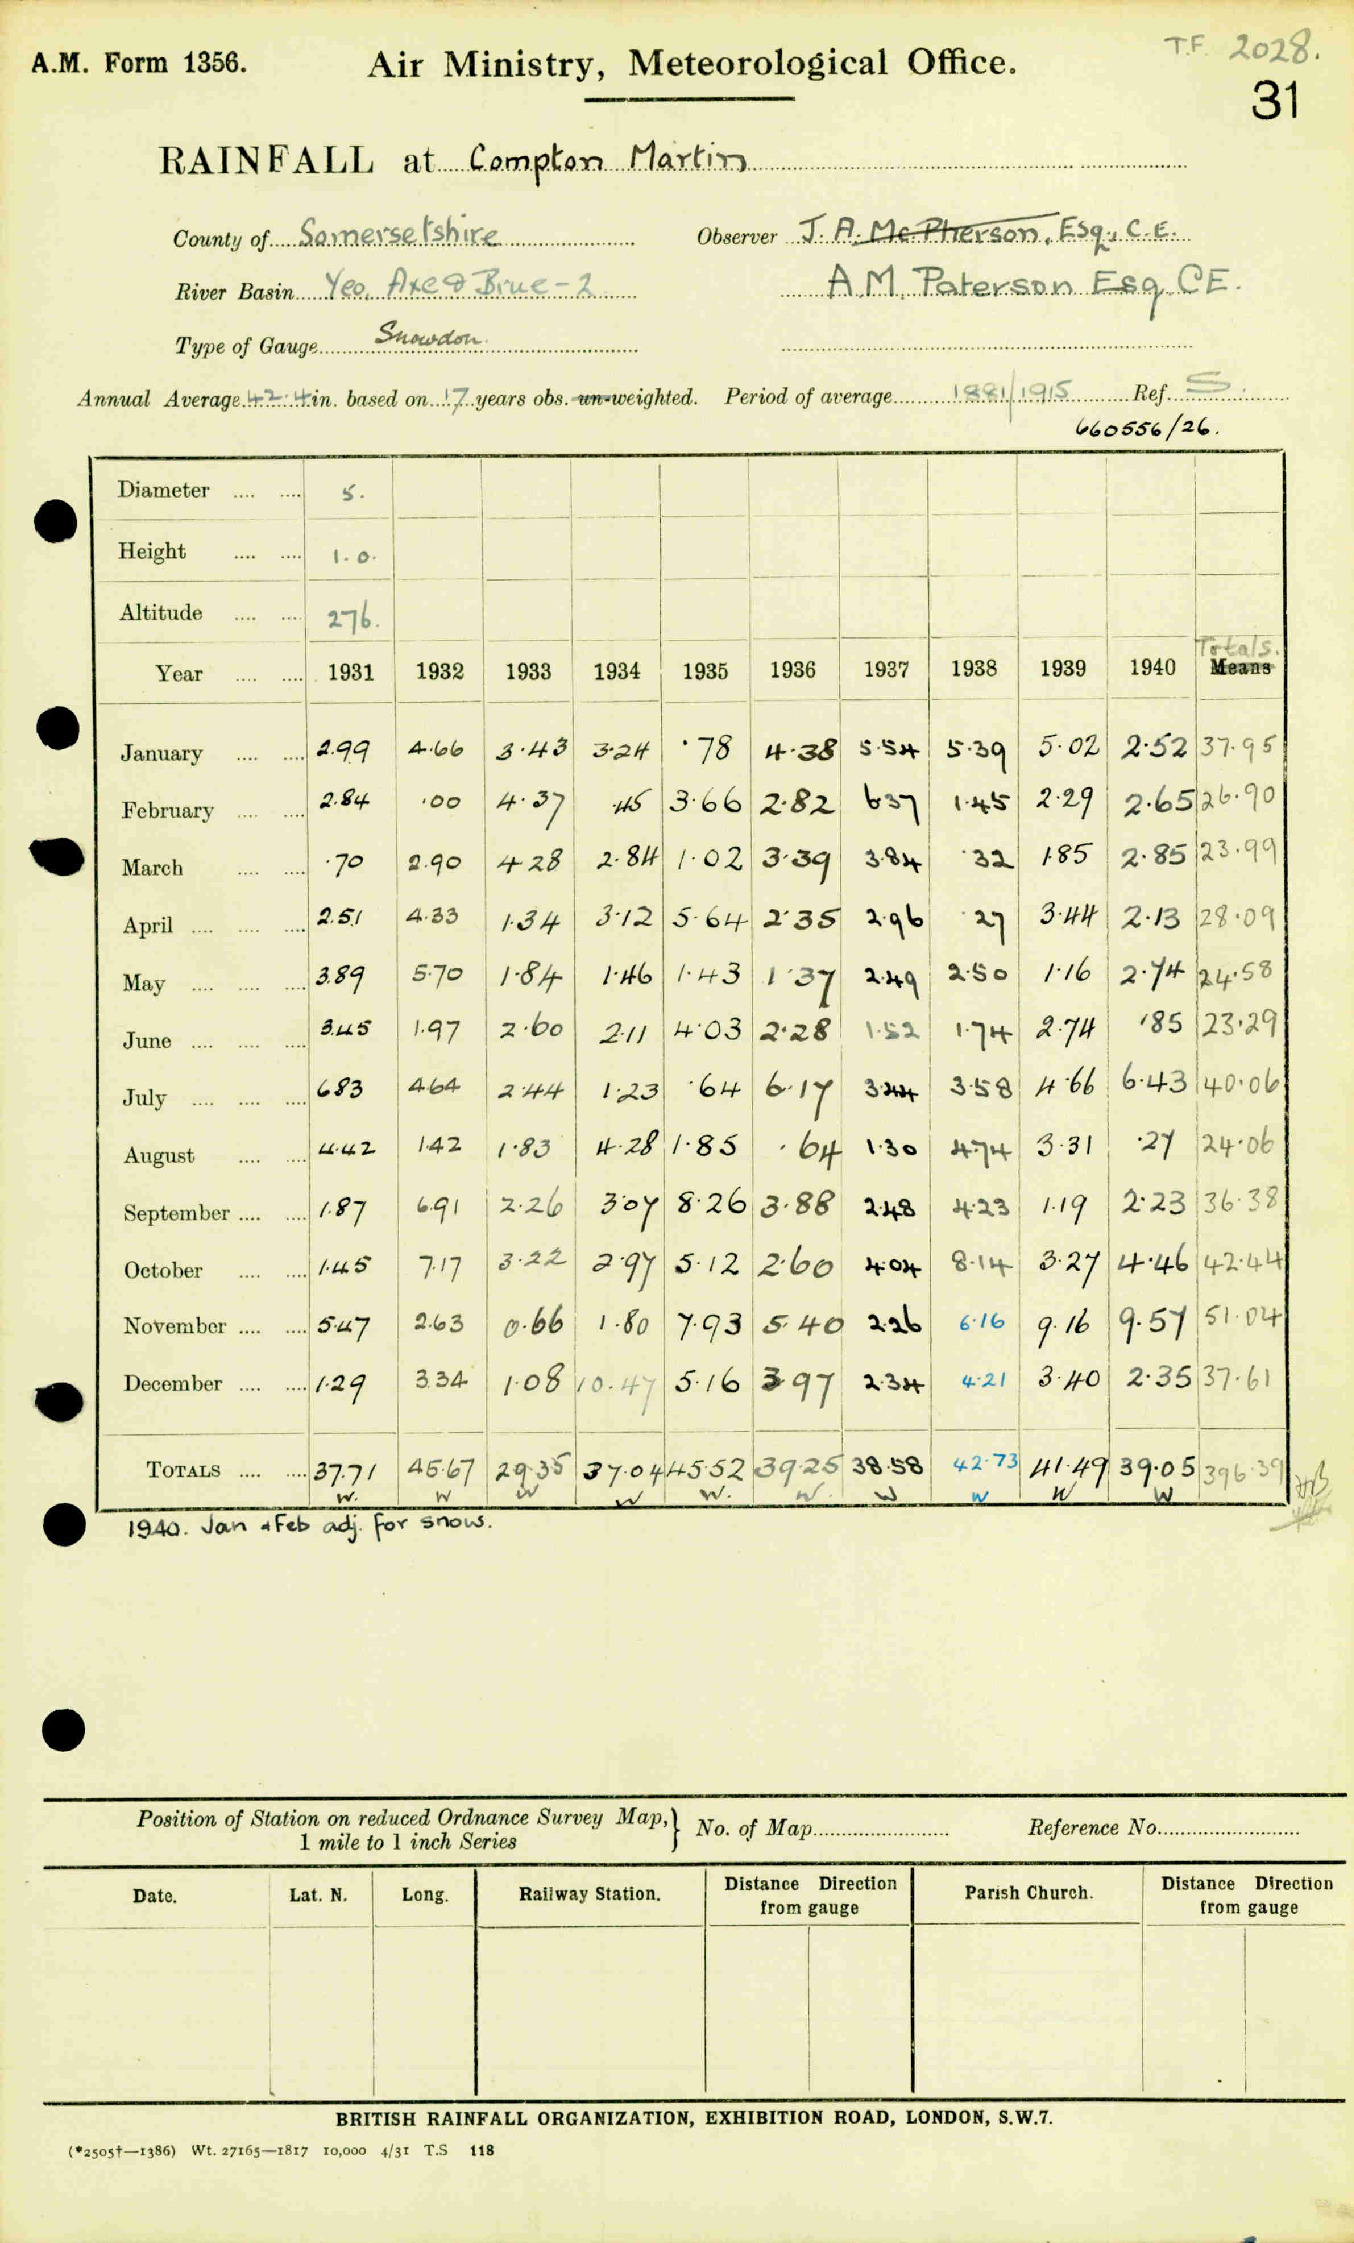 T.F. 2028.
A.M. Form 1356. Air Ministry, Meteorological Office.
31
RAINFALL at Compton Martin
County of Somersetshire Observer J. A. McPherson, Esq., C.E.
River Basin Yeo, Axe & Brue - 2 A.M. Paterson Esq. CE.
Type of Gauge Snowdon.
Annual Average 42.4 in. based on 17 years obs. un-weighted. Period of average 1881/1915 Ref. S.
660556/26.
Diameter 5.
Height 1.0.
Altitude 276.
Totals.
Year 1931 1932 1933 1934 1935 1936 1937 1938 1939 1940 Means
January 2.99 4.66 3.43 3.24 .78 4.38 5.54 5.39 5.02 2.52 37.95
February 2.84 .00 4.37 .45 3.66 2.82 6.37 1.45 2.29 2.65 26.90
March .70 2.90 4.28 2.84 1.02 3.39 3.84 .32 1.85 2.85 23.99
April 2.51 4.33 1.34 3.12 5.64 2.35 2.96 .27 3.44 2.13 28.09
May 3.89 5.70 1.84 1.46 1.43 1.37 2.49 2.50 1.16 2.74 24.58
June 3.45 1.97 2.60 2.11 4.03 2.28 1.52 1.74 2.74 .85 23.29
July 6.83 4.64 2.44 1.23 .64 6.17 3.44 3.58 4.66 6.43 40.06
August 4.42 1.42 1.83 4.28 1.85 .64 1.30 4.74 3.31 .27 24.06
September 1.87 6.91 2.26 3.07 8.26 3.88 2.48 4.23 1.19 2.23 36.38
October 1.45 7.17 3.22 2.97 5.12 2.60 4.04 8.14 3.27 4.46 42.44
November 5.47 2.63 0.66 1.80 7.93 5.40 2.26 6.16 9.16 9.57 51.04
December 1.29 3.34 1.08 10.47 5.16 3.97 2.34 4.21 3.40 2.35 37.61
TOTALS 37.71 45.67 29.35 37.04 45.52 39.25 38.58 42.73 41.49 39.05 396.39
W. W W W W. W. W W W W
1940. Jan & Feb adj. for snow.
Position of Station on reduced Ordnance Survey Map, No. of Map Reference No.
1 mile to 1 inch Series
Date. Lat. N. Long. Railway Station. Distance Direction from gauge Parish Church. Distance Direction from gauge
BRITISH RAINFALL ORGANIZATION, EXHIBITION ROAD, LONDON, S.W.7.
(*2505†—1386) Wt. 27165—1817 10,000 4/31 T.S 118